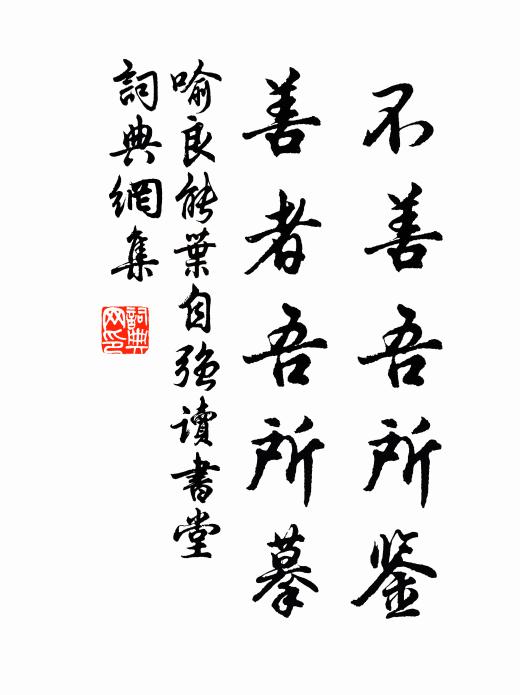 不善吾所鉴
善者吾所摹
喻良能葉自强讀書堂
詞典網集
詞典网印